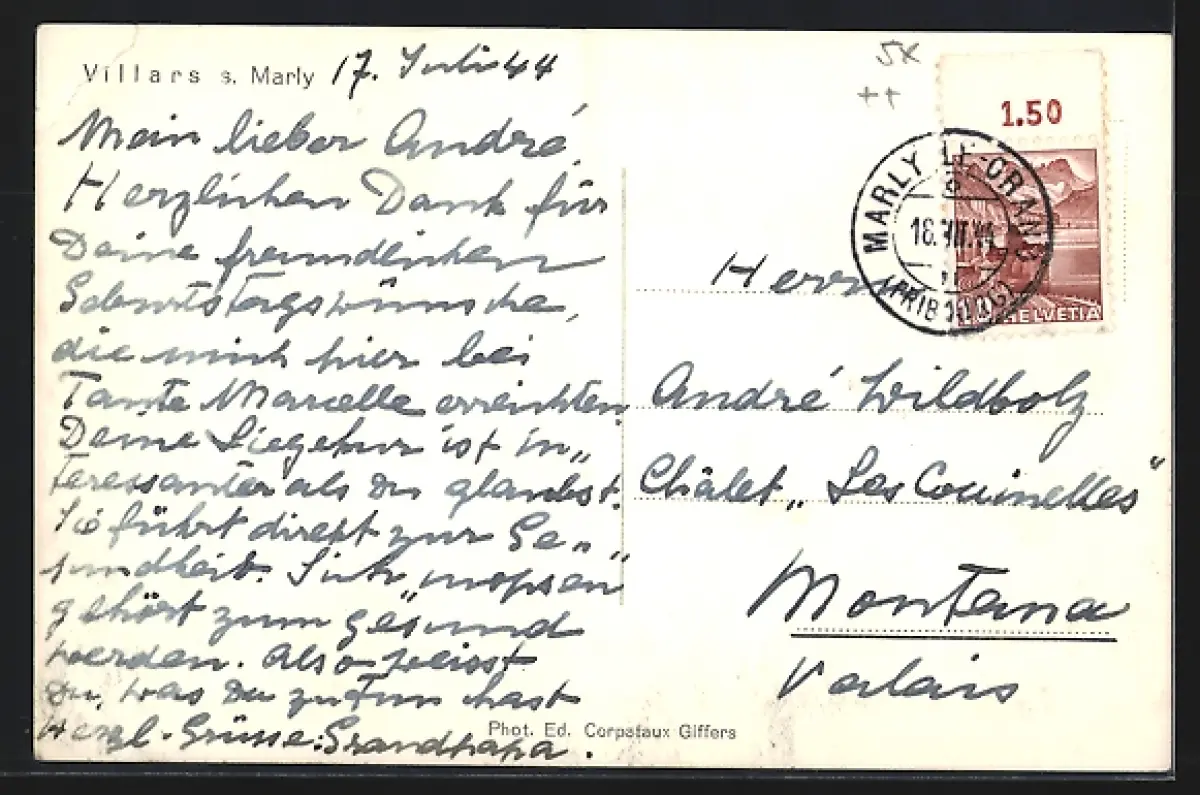 Villars s. Marly 17. Juli 44
Mein lieber André,
Herzlichen Dank für
Deine freundlichen
Geburtstagswünsche,
die mich hier bei
Tante Marcelle erreichten.
Deine Liegekur ist in„
teressanter als Du glaubst.
Sie führt direkt zur Ge„
sundheit. Sich „mopsen"
gehört zum gesund
werden. Also weisst
Du, was Du zu tun hast
Herzl. Grüsse: Grandpapa.
Phot. Ed. Corpataux Giffers
5x
++
1.50
MARLY-LE-GRAND
18.VII.44
(FRIBOURG)
HELVETIA
Herrn
André Wildbolz
Châlet „Les Coccinelles"
Montana
Valais